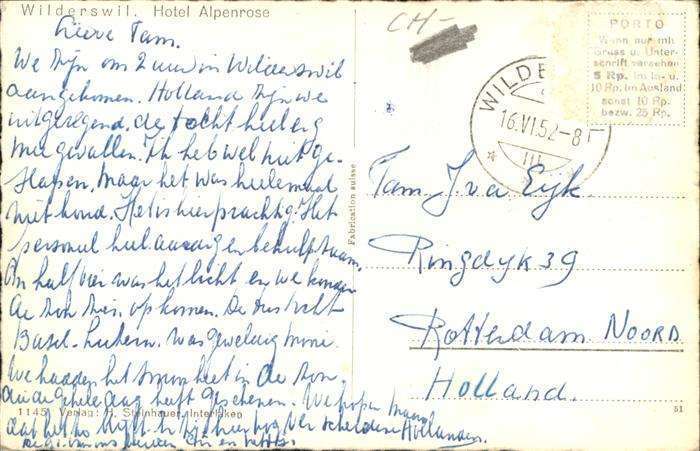 Wilderswil. Hotel Alpenrose
Lieve Tam.
We zijn om 2 uur in Wilderswil
aangekomen. Holland zijn we
uitgeregend, de tocht heel erg
meegevallen. Ik heb wel niet ge-
slapen, maar het was heelemaal
niet koud. Het is hier prachtig. Het
personeel heel aardig en behulpzaam.
Om half vier was het licht en we konden
de zon zien opkomen. De tocht
Basel-Luzern was geweldig mooi.
We hadden het snoeiheet in de zon
die de geheele dag heeft geschenen. We hopen maar
dat het zo blijft. Er zijn hier nog verscheidene Hollanders.
1145 Verlag: H. Steinhauer, Interlaken
Fabrication suisse
CH-
WILDE
16.VI.52-8
III
PORTO
Wenn nur mit
Gruss u. Unter-
schrift versehen
5 Rp. im In- u.
10 Rp. im Ausland
sonst 10 Rp.
bezw. 25 Rp.
Tam J. v.a. Eyk
Ringdyk 39
Rotterdam Noord
Holland.
51